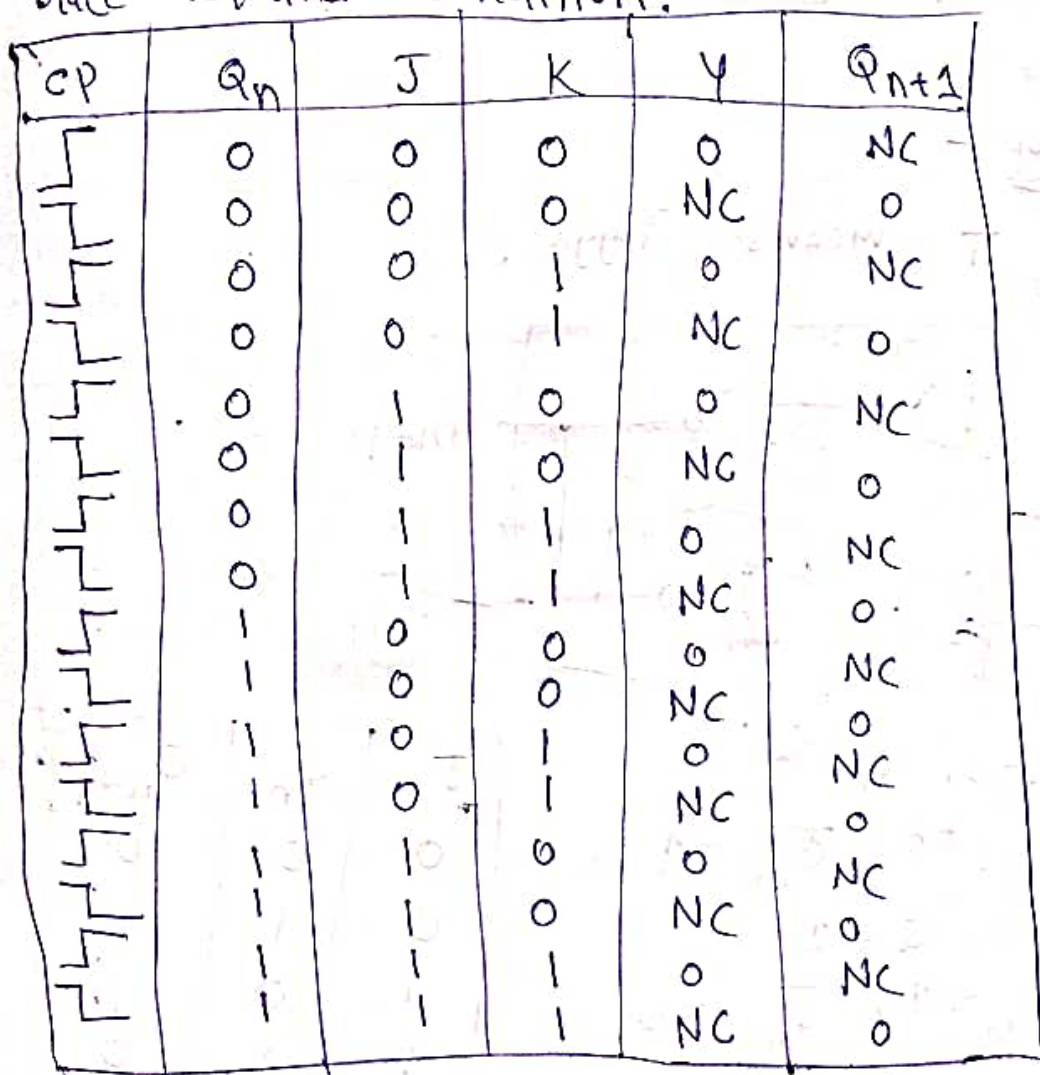 CP Qn J K Y Qn+1
0 0 0 0 NC
0 0 0 NC 0
0 0 1 0 NC
0 0 1 NC 0
0 1 0 0 NC
0 1 0 NC 0
0 1 1 0 NC
0 1 1 NC 0
1 0 0 0 NC
1 0 0 NC 0
1 0 1 0 NC
1 0 1 NC 0
1 1 0 0 NC
1 1 0 NC 0
1 1 1 0 NC
1 1 1 NC 0